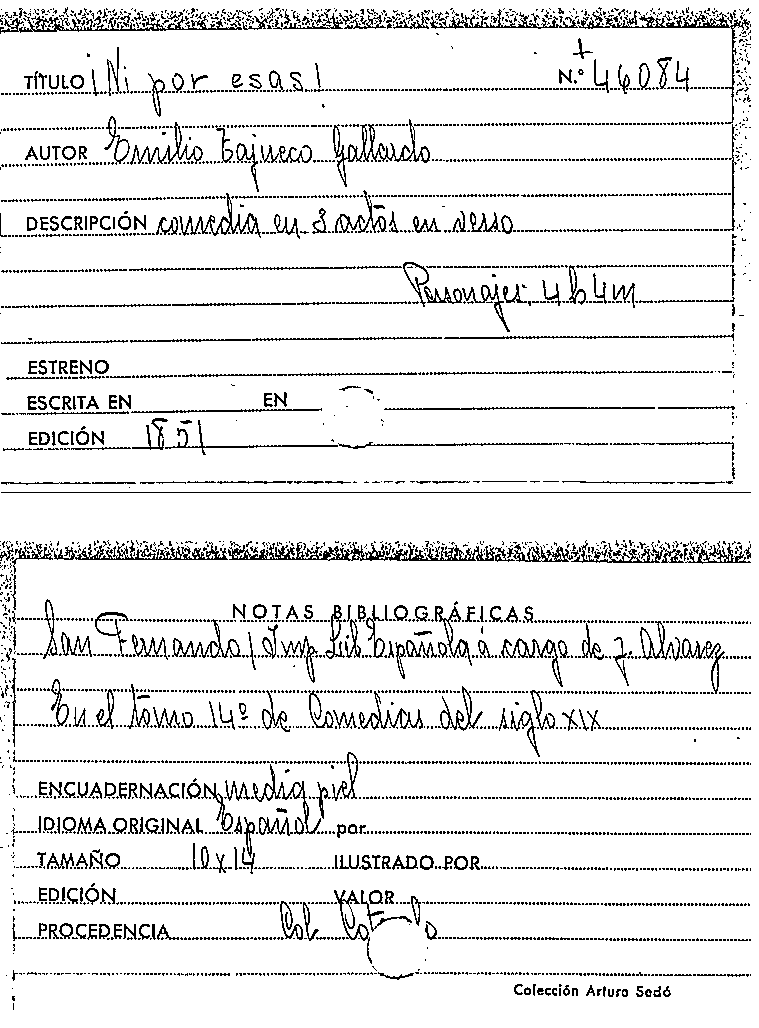 TÍTULO ¡Ni por esas! N.º 46084
AUTOR Emilio Tajueco Gallardo
DESCRIPCIÓN comedia en 3 actos en verso
Personajes: 4h 4m
ESTRENO
ESCRITA EN EN
EDICIÓN 1851
NOTAS BIBLIOGRÁFICAS
San Fernando / Imp Lib Española á cargo de J. Alvarez
En el tomo 14º de Comedias del siglo XIX
ENCUADERNACIÓN media piel
IDIOMA ORIGINAL Español por
TAMAÑO 10 x 14 ILUSTRADO POR
EDICIÓN VALOR
PROCEDENCIA Col.
Colección Arturo Sedó